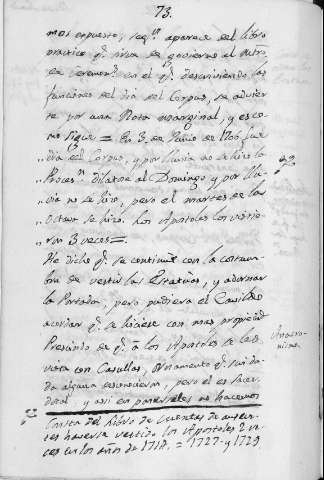 73.
mos expuesto, seg.n aparece del libro
practico q.e sirve de govierno al
de Cerem.s en el q.e descriviendo las
funciones del dia del Corpus, se advier
te por una Nota marginal, y es co
mo sigue = En 3, de Junio de 1706, fue
"dia del Corpus, y por lluvia no se hizo la
"Proces.n dilatose al Domingo y por llu
"via no se hizo, pero el martes de la
"Octava se hizo. Los Apostoles los vistie
"ron 3 veces =.
He dicho q.e se continuó con la costum
bre de vestir las Estatuas, y adornar
la Portada, pero pudiera el Cavildo
acordar q.e se hiciese con mas propiedad
Presindo de q.e a los Apostoles se les
vista con Casullas, Ornamento q.e sin du
da alguna desconocieron, pero el es Sacer
dotal, y asi en ponerseles no hacemos
Anacro-
nismo
Consta del Libro de Cuentas de
haverse vestido los Apostoles 2 ve
ces en los años de 1718. = 1727. y 1729.